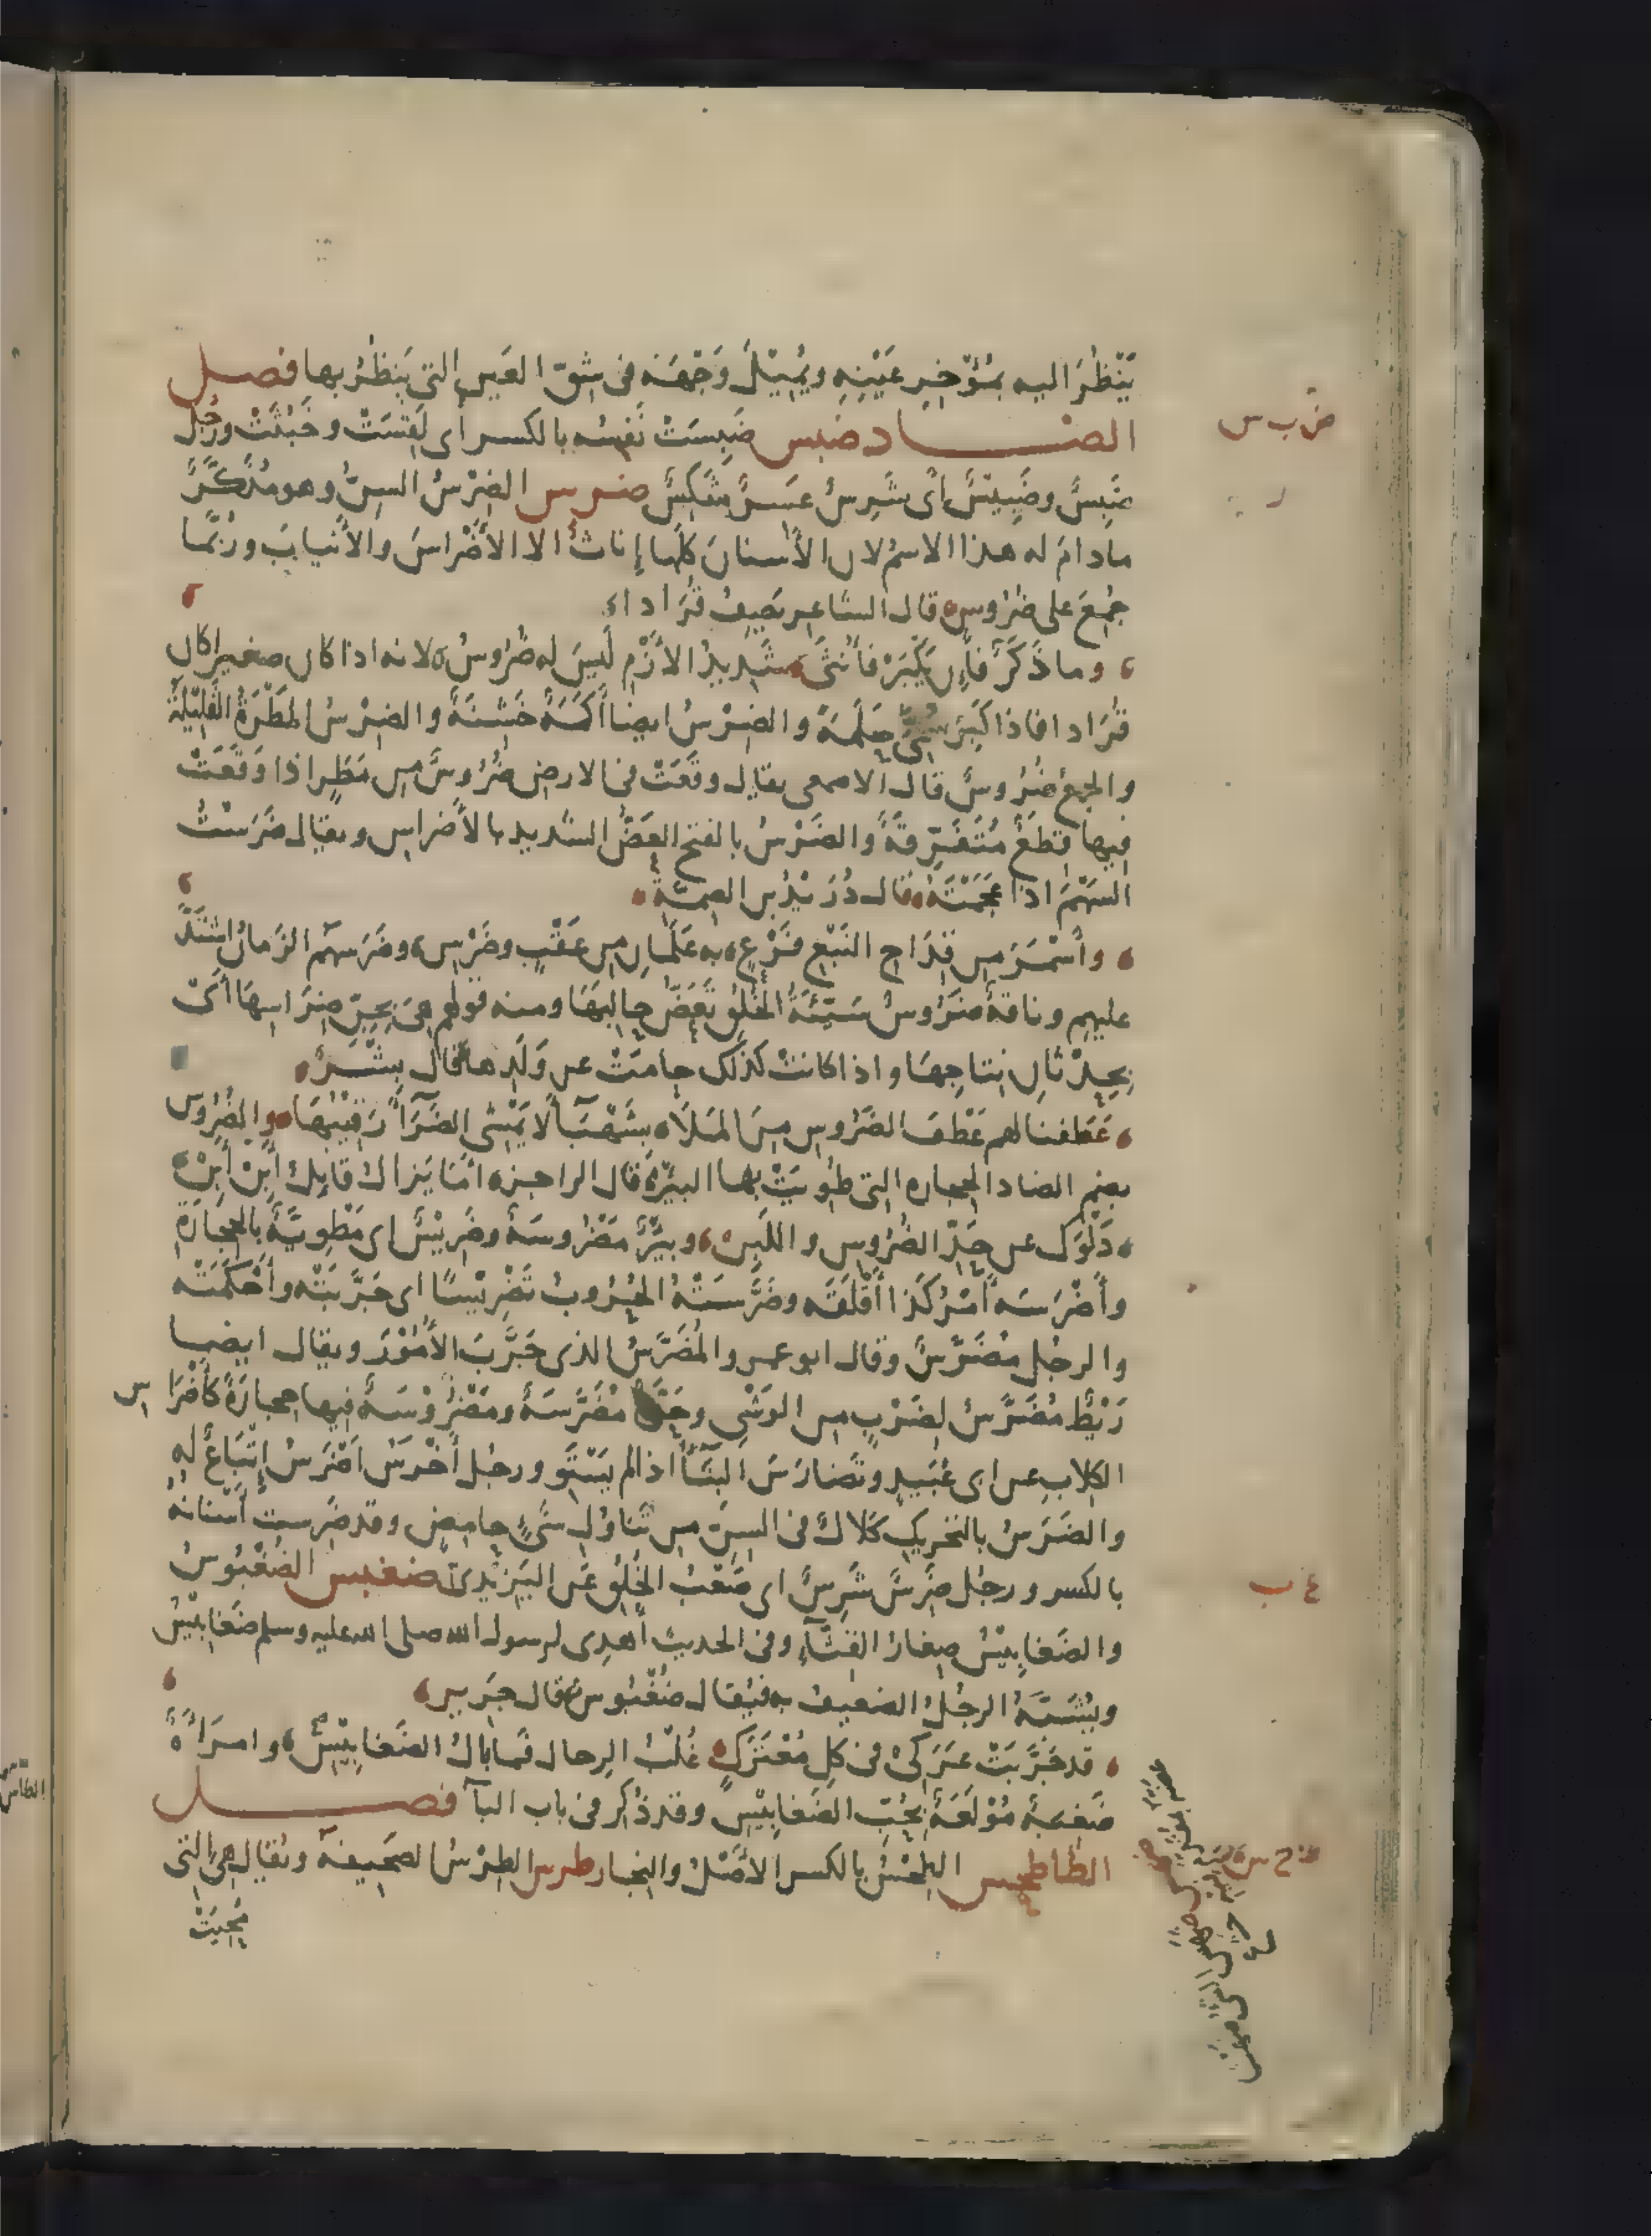 يَنْظُرَ اليه بمُؤْخِرِ عَيْنِهِ ويُمِيْلَ وَجْهَه في شِقّ العَينِ التي يَنظُرُ بها فصل
الضاد ضبس ضَبِسَتْ نَفسُه بالكسر أى لَقِسَتْ وخَبُثَتْ ورَجُل
ضَبِسٌ وضَبِيْسٌ أى شَرِسٌ عَسِرٌ شَكِسٌ ضرس الضِرْسُ السِنُّ وهو مُذَكَّرٌ
مادامَ له هذا الاسمُ لان الأَسنانَ كلَّها إناثٌ الا الأَضْراسَ والأَنيابَ ورُبَّما
جُمِعَ على ضُرُوسٍ قال الشاعر يَصِفُ قُرَادا
وما ذَكَرٌ فإن يَكْبَرْ فأُنْثَى شَدِيدُ الأَزْمِ لَيسَ له ضُرُوسُ لانه اذا كان صغيرا كان
قُرَادا فاذا كَبِرَ سُمِّىَ حَلَمَةً والضِرْسُ ايضا أَكَمَةٌ خَشِنَةٌ والضِرْسُ المَطْرَةُ القَلِيْلَةُ
والجمعُ ضُرُوسٌ قال الاصمعى يقال وقَعَتْ في الارض ضُرُوسٌ من مَطَرٍ اذا وَقَعَتْ
فيها قِطَعٌ مُتَفَرِّقَةٌ والضَرْسُ بالفتح العَضُّ الشديد بالأَضراس ويقال ضَرَسْتُ
السَهْمَ اذا عَجَمْتَه قال دُرَيْدُ بن الصِمَّةِ
وأَسْمَرَ من قِدَاحِ النَبْعِ فَرْعٍ به عَلَمانِ من عَقَبٍ وضَرْسِ وضَرَسَهم الزَمانُ اشْتَدَّ
عليهم وناقةٌ ضَرُوسٌ سَيِّئَةُ الخُلُقِ تَعَضُّ حالِبَهَا ومنه قولهم هِىَ بِجِنِّ ضِرَاسِهَا أىْ
بِحِدْثَانِ نِتاجِهَا واذا كانت كذلك حامَتْ عن وَلَدِها قال بِشْرٌ
عَطَفنا لهم عَطْفَ الضَرُوسِ مِنَ المَلَا بِشَهْبَآءَ لا يَمْشِى الضَرَآءَ رَقِيْبُهَا والضُرُوس
بضم الضاد الحجاره التى طُوِيَتْ بها البِئْرُ قال الراجز امَّا يَزَالُ قايِلٌ أَبِنْ أَبِنْ
دَلْوَك عن حَدِّ الضُرُوسِ واللَبِنْ وبِئْرٌ مَضْرُوسَةٌ وضَرِيْسٌ اى مَطْوِيَّةٌ بالحِجَارَةِ
وأَضْرَسَه أَمْرُ كَذا أَقْلَقَه وضَرَّسَتْهُ الحُرُوبُ تَضْرِيْسًا اى جَرَّبَتْه وأَحْكَمَتْه
والرجُل مُضَرَّسٌ وقال ابوعمرو المُضَرَّسُ الذى جَرَّبَ الأُمُوْرَ ويقال ايضا
رَيْطٌ مُضَرَّسٌ لِضَرْبٍ من الوَشْىِ وحَرَّةٌ مُضَرَّسَةٌ ومَضْرُوْسَةٌ فيها حِجارَةٌ كأَضْرَاس
الكِلابِ عن ابى عُبَيدٍ وتَضارَسَ البِنَآءُ اذا لم يَسْتَوِ ورجُل أَخْرَسُ اَضْرَسُ اِتْبَاعٌ له
والضَرَسُ بالتحريك كَلَالٌ في السِنّ من تَناوُلِ شَىْءٍ حامِضٍ وقد ضَرِست أَسْنانُه
بالكسر ورجُل ضَرِسٌ شَرِسٌ اى صَعْبُ الخُلُقِ عَن اليَزِيْدِىّ ضغبس الضُغْبُوسُ
والضَغابِيْسُ صِغارُ القِثَّآءِ وفى الحديث أُهدِى لرسول الله صلى الله عليه وسلم ضَغابِيْسُ
ويُشَبَّهُ الرجُلُ الضعيف به فيُقال ضُغْبُوسٌ قال جَرِير
قد جَرَّبَتْ عَرَكِى في كلِّ مُعْتَرَكٍ غُلْبُ الرجال فما بالُ الضَغابِيْسِ وامرَأَةٌ
ضَغِبَةٌ مُوْلَعَةٌ بحُبّ الضَغابِيْسِ وقد ذُكِر في باب البآ فصل
الطا طحس الطِحْسُ بالكسر الأَصْلُ والنجار طرس الطِرْسُ الصَحِيفة ويُقال هى التى
مُحِيَتْ
ض ب س
ر
غ ب